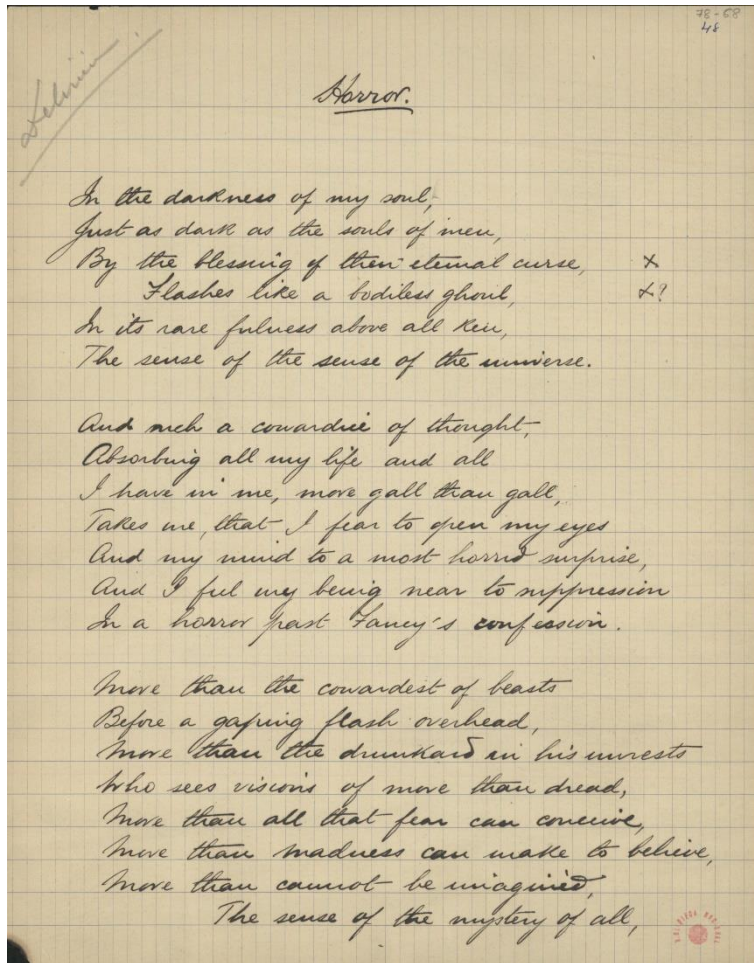 78-68
48
Delirium
Horror.
In the darkness of my soul,
Just as dark as the souls of men,
By the blessing of their eternal curse, x
Flashes like a bodiless ghoul, x?
In its rare fulness above all ken,
The sense of the sense of the universe.
And such a cowardice of thought,
Absorbing all my life and all
I have in me, more gall than gall,
Takes me, that I fear to open my eyes
And my mind to a most horrid surprise,
And I feel my being near to suppression
In a horror past Fancy's confession.
More than the cowardest of beasts
Before a gaping flash overhead,
More than the drunkard in his unrests
Who sees visions of more than dread,
More than all that fear can conceive,
More than madness can make to believe,
More than cannot be imagined,
The sense of the mystery of all,